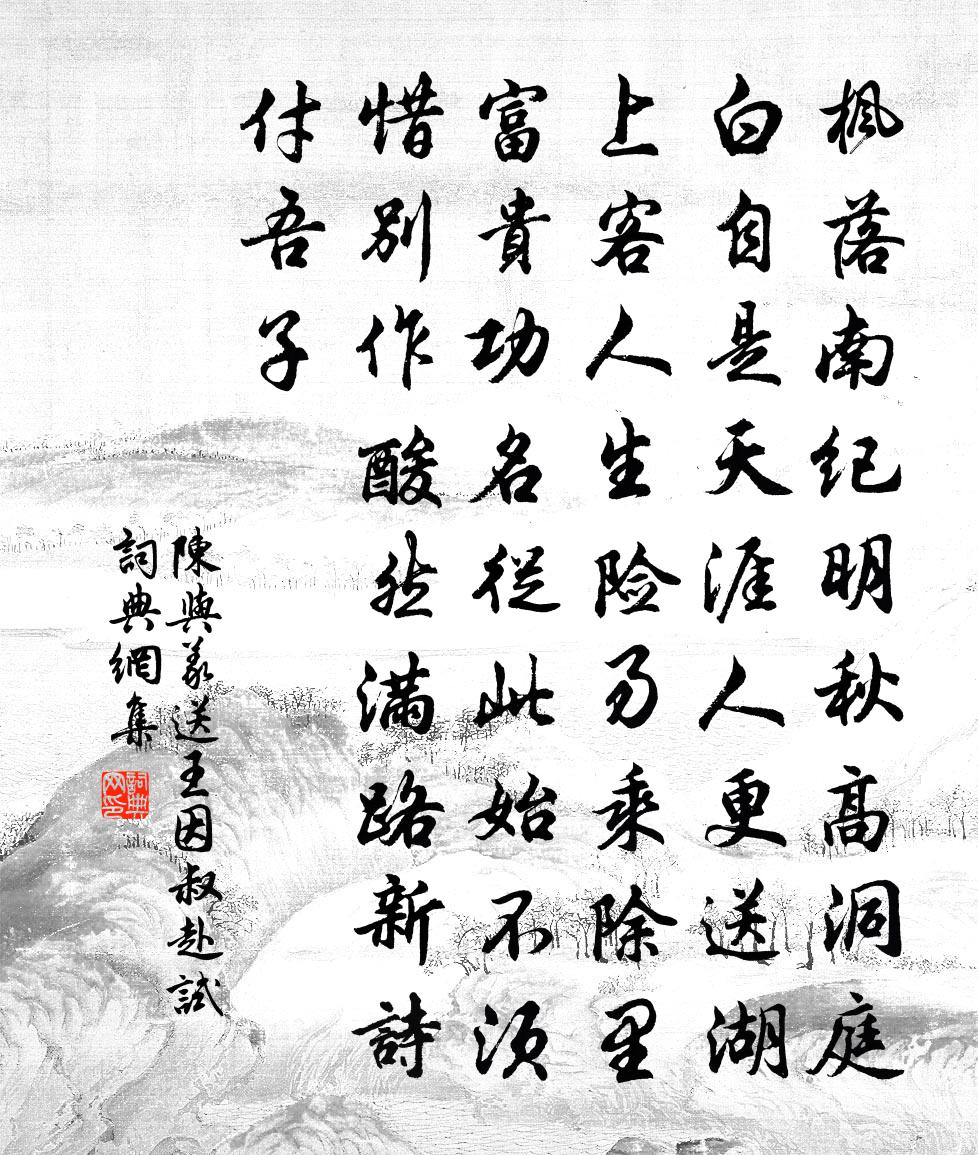 枫落南纪明秋高洞庭
白自是天涯人更送湖
上客人生险易乘除里
富贵功名從此始不须
惜别作酸然满路新詩
付吾子
陳與義送王因叔赴試
詞典網集
詞典网印